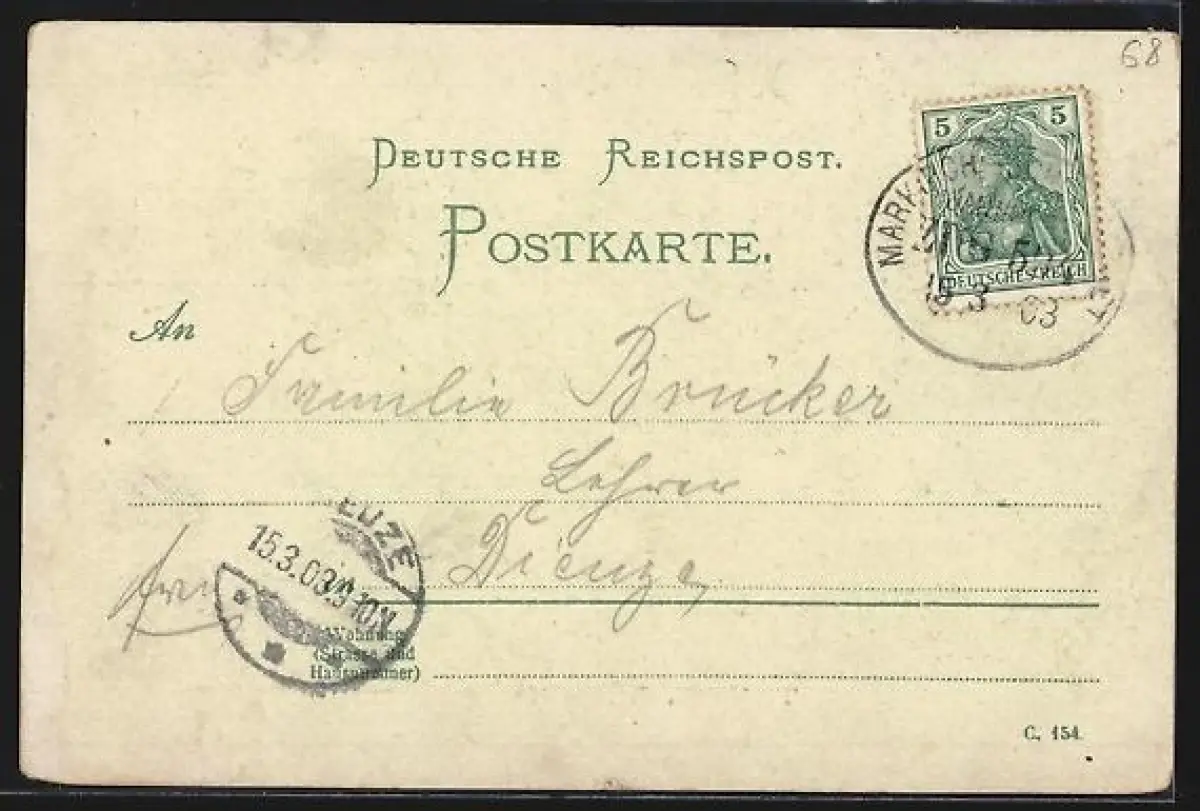 68
DEUTSCHE REICHSPOST.
POSTKARTE.
5 5
DEUTSCHES REICH
03
An
Familie Brücker
Lehrer
Dieuze
EUZE
15.3.03.
Wohnung
(Strasse und
Hausnummer)
C. 154.